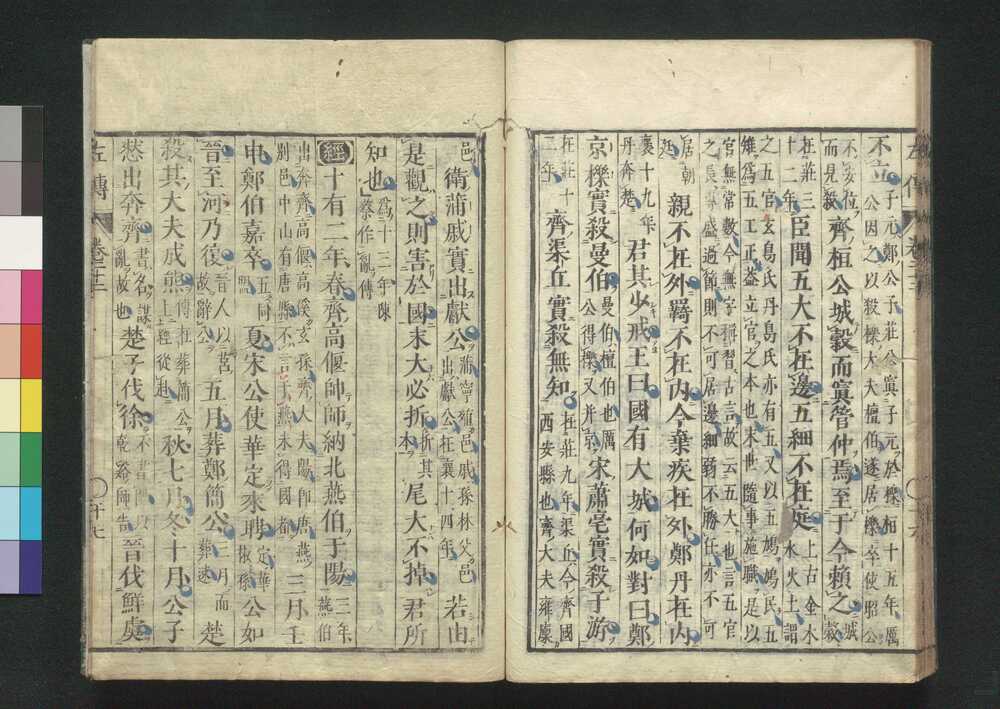 不立子元鄭公子莊公寘子元於櫟桓十五年厲公因之以殺櫟大夫檀伯遂居櫟卒使昭公
不安位而見殺齊桓公城穀而寘管仲焉至于今賴之城穀
在莊三十二年臣聞五大不在邊五細不在庭上古金木水火土謂
之五官玄鳥氏丹鳥氏亦有五又以五鳩鳩民五雉爲五工正蓋立官之本也末世隨事施職是以
官無常數今無宇稱習古言故云五大也言五官之長專盛過節則不可居邊細弱不勝任亦不可
居朝廷親不在外羇不在内今棄疾在外鄭丹在内
襄十九年丹奔楚君其少戒王曰國有大城何如對曰鄭
京櫟實殺曼伯曼伯檀伯也厲公得櫟又并京宋蕭亳實殺子游
在莊十二年齊渠丘實殺無知在莊九年渠丘今齊國西安縣也齊大夫雍廩
邑衛蒲戚實出獻公蒲甯殖邑戚孫林父邑出獻公在襄十四年若由
是觀之則害於國末大必折折其本尾大不掉君所
知也爲十三年陳蔡作亂傳
經十有二年春齊高偃帥師納北燕伯于陽三年燕伯
出奔齊高偃高傒玄孫齊大夫陽即唐燕別邑中山有唐縣不言于燕未得國都三月壬
申鄭伯嘉卒五同盟夏宋公使華定來聘定華椒孫公如
晉至河乃復晉人以莒故辭公五月葬鄭簡公三月而葬速楚
殺其大夫成熊傳在葬簡公上經從赴秋七月冬十月公子
憖出奔齊書名謀亂故也楚子伐徐不書圍以乾谿師告晉伐鮮虞
左傳 卷二十二 卄七